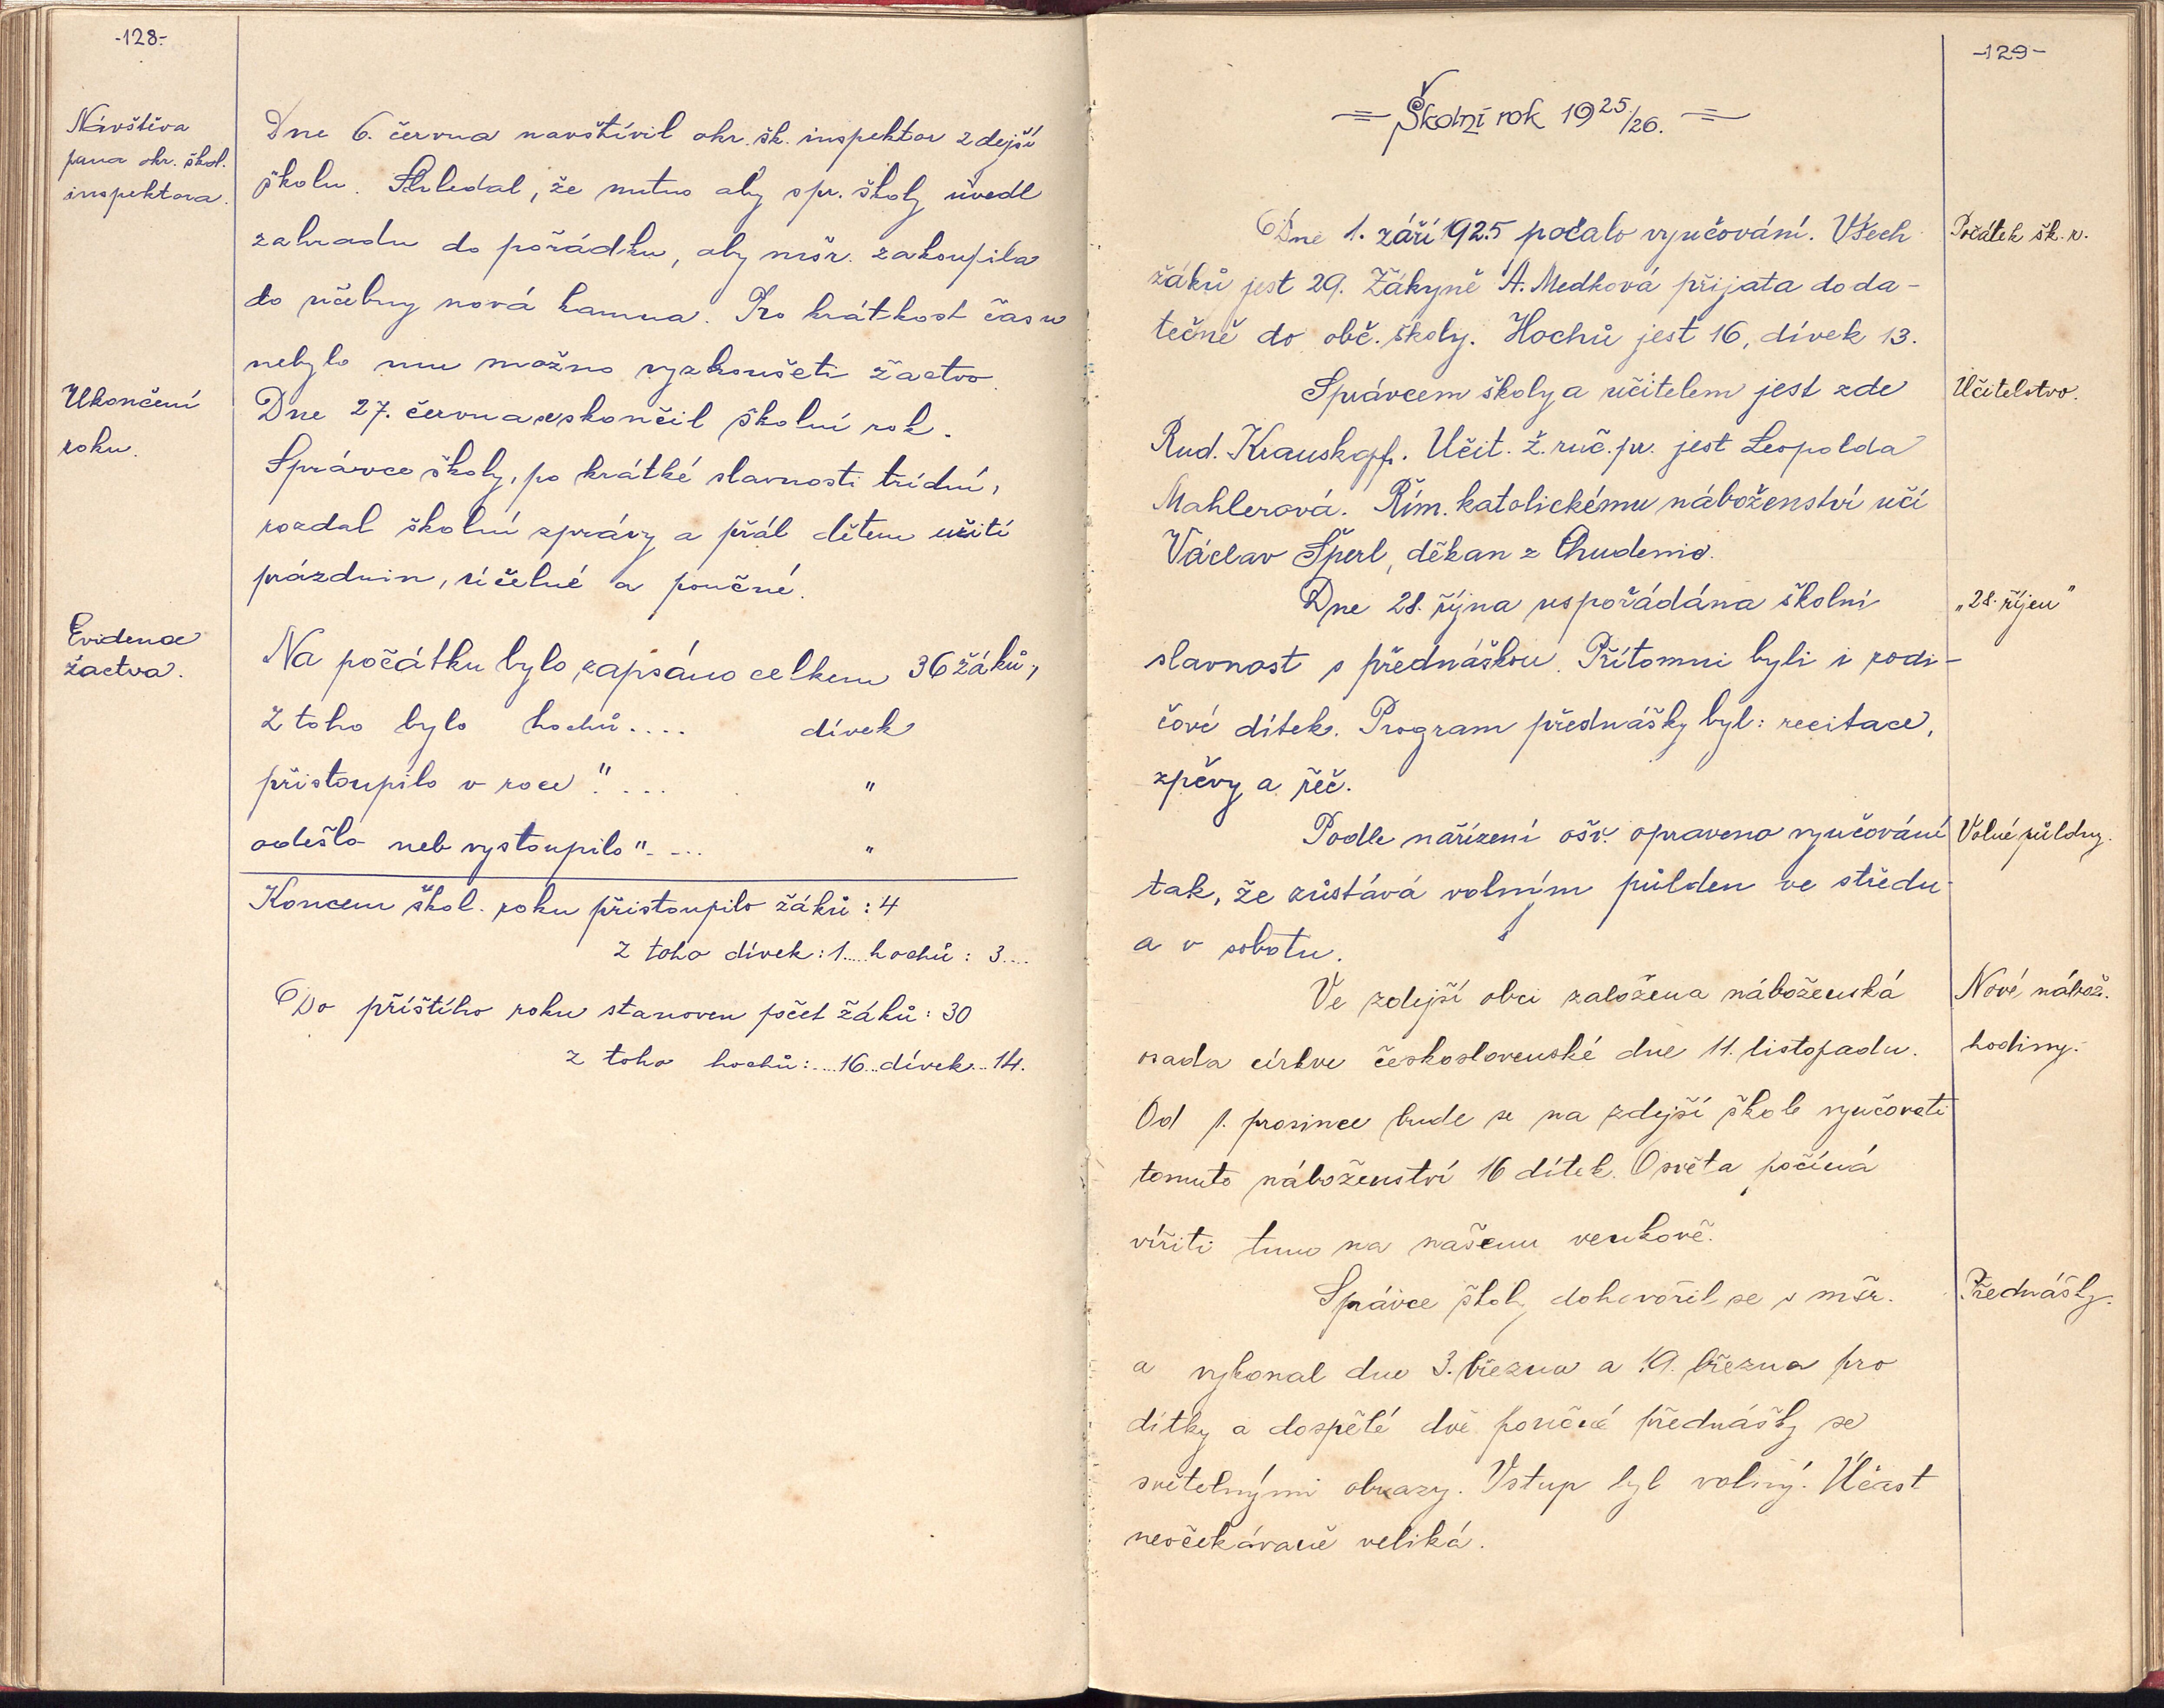 -128-
Návštěva
pana okr. škol.
inspektora.
Dne 6. června navštívil okr. šk. inspektor zdejší
školu. Shledal, že nutno aby spr. školy uvedl
zahradu do pořádku, aby mšr. zakoupila
do učebny nová kamna. Pro krátkost času
nebylo mu možno vyzkoušeti žactvo.
Ukončení
roku.
Dne 27. června skončil školní rok.
Správce školy, po krátké slavnosti třídní,
rozdal školní zprávy a přál dětem užití
prázdnin, účelné a poučné.
Evidence
žactva.
Na počátku bylo zapsáno celkem 36 žáků,
z toho bylo hochů.... dívek
přistoupilo v roce " .... "
odešlo neb vystoupilo " .... "
Koncem škol. roku přistoupilo žáků : 4
z toho dívek : 1.... hochů : 3....
Do příštího roku stanoven počet žáků : 30
z toho hochů : ....16...dívek...14.
-129-
Školní rok 1925/26.
Dne 1. září 1925 počalo vyučování. Všech
Počátek šk. r.
žáků jest 29. Žákyně A. Medková přijata doda-
tečně do obč. školy. Hochů jest 16, dívek 13.
Správcem školy a učitelem jest zde
Učitelstvo.
Rud. Krauskopf. Učit. ž. ruč. pr. jest Leopolda
Mahlerová. Řím. katolickému náboženství učí
Václav Šperl, děkan z Chudenic.
Dne 28. října uspořádána školní
„28. říjen"
slavnost s přednáškou. Přítomni byli i rodi-
čové dítek. Program přednášky byl : recitace,
zpěvy a řeč.
Podle nařízení ošv. opraveno vyučování
Volné půldny.
tak, že zůstává volným půlden ve středu
a v sobotu.
Ve zdejší obci založena náboženská
Nové nábož.
osada církve československé dne 11. listopadu.
hodiny.
Od 1. prosince bude se na zdejší škole vyučovati
tomuto náboženství 16 dítek. Osvěta počíná
vířiti tmu na našem venkově.
Správce školy dohovořil se s mšr.
Přednášky.
a vykonal dne 3. března a 19. března pro
dítky a dospělé dvě poučné přednášky se
světelnými obrazy. Vstup byl volný. Účast
neočekávaně veliká.